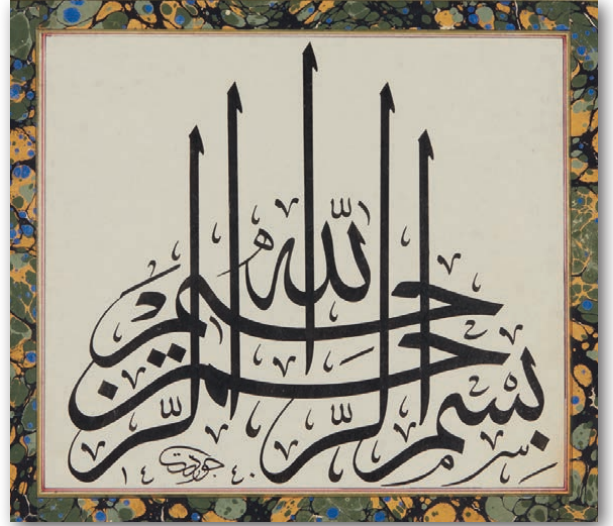 بسم الله الرحمن الرحيم
جودت
١٤٤٠